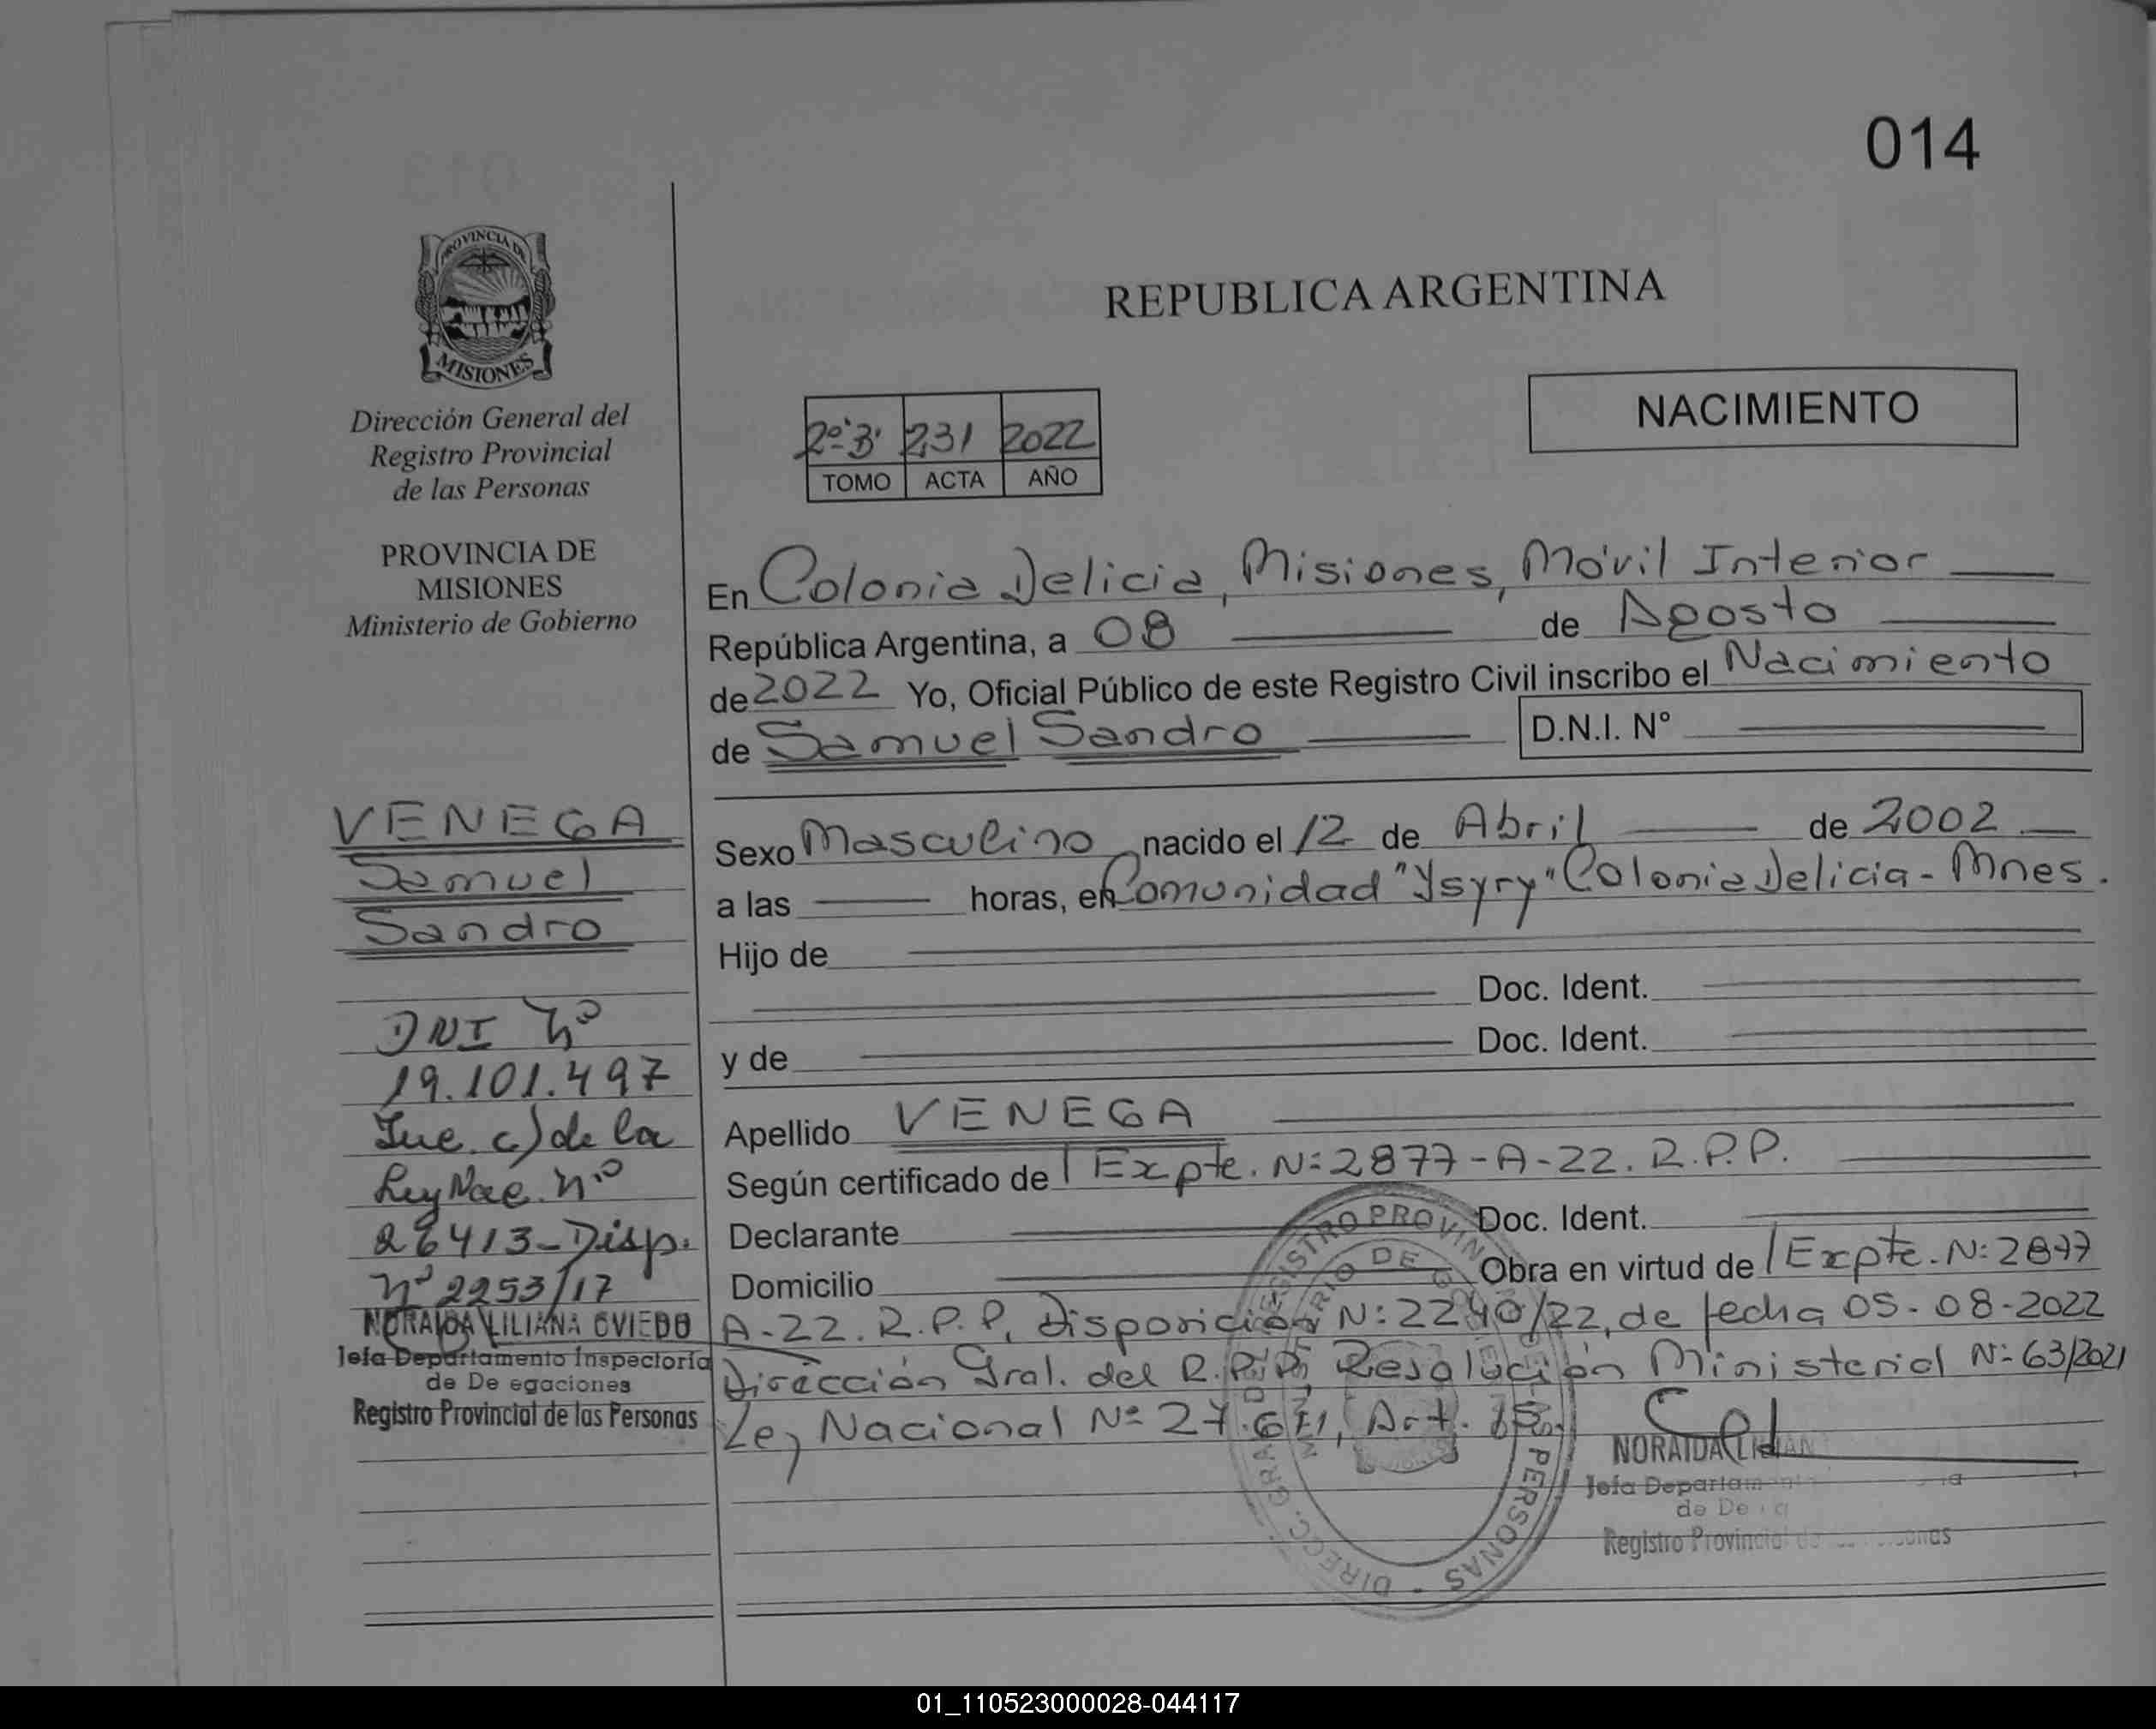 014
PROVINCIA DE
MISIONES
Dirección General del
Registro Provincial
de las Personas
PROVINCIA DE
MISIONES
Ministerio de Gobierno
VENEGA
Samuel
Sandro
DNI Nº
19.101.497
Jue. c) de la
Ley Nac. nº
26413-Disp.
nº 2253/17
NORAIDA LILIANA OVIEDO
Jefa Departamento Inspectoria
de De egaciones
Registro Provincial de las Personas
REPUBLICA ARGENTINA
NACIMIENTO
2º"B" 231 2022
TOMO ACTA AÑO
En Colonia Delicia, Misiones, Móvil Interior
República Argentina, a 08 de Agosto
de 2022 Yo, Oficial Público de este Registro Civil inscribo el Nacimiento
de Samuel Sandro D.N.I. Nº
Sexo Masculino nacido el 12 de Abril de 2002
a las horas, en Comunidad "Ysyry" Colonia Delicia - Mnes.
Hijo de
Doc. Ident.
y de Doc. Ident.
Apellido VENEGA
Según certificado de Expte. Nº 2877-A-22. R.P.P.
Declarante Doc. Ident.
Domicilio Obra en virtud de Expte. Nº 2877
A-22. R.P.P, Disposición Nº 2240/22, de fecha 05-08-2022
Dirección Gral. del R.P.P, Resolución Ministerial Nº 63/2021
Ley Nacional Nº 27.611, Art.
NORAIDA LILIAN
Jefa Departam
de De
Registro Provincial de onas
DIRECC. GRAL REGISTRO PROVIN PERSONAS
01_110523000028-044117